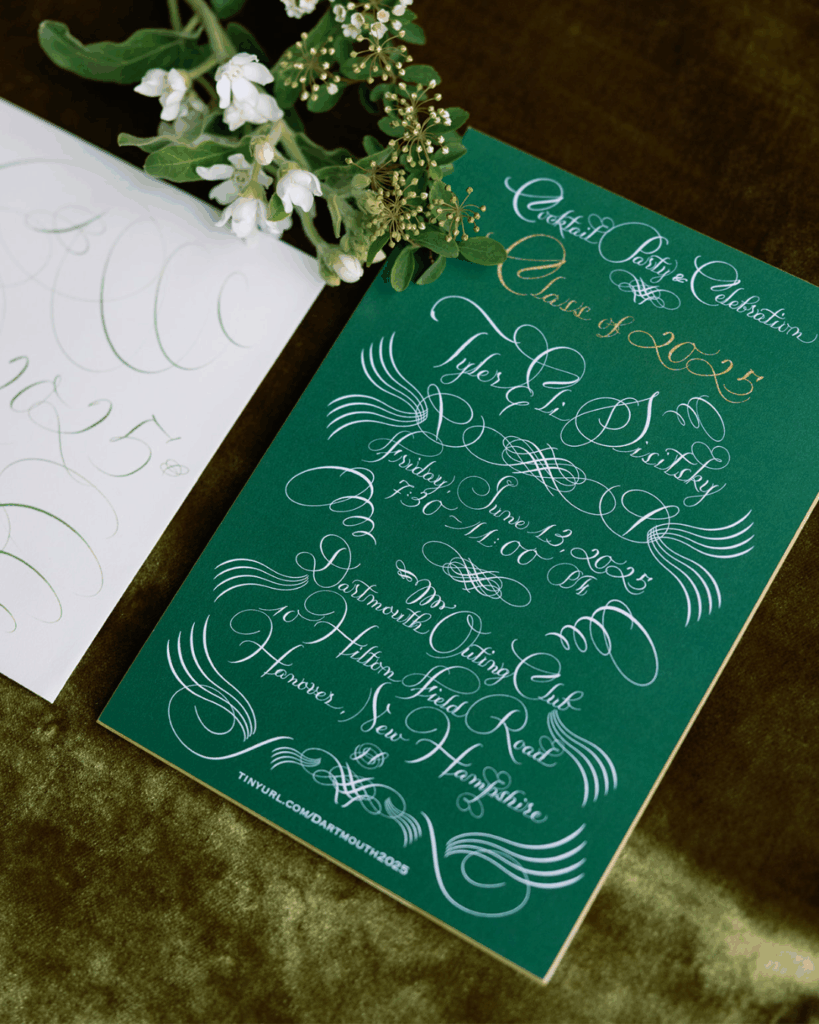 Cocktail Party & Celebration
Class of 2025
Tyler Eli Disitsky
Friday, June 13, 2025
7:30-11:00 PM
Dartmouth Outing Club
10 Hilton Field Road
Hanover, New Hampshire
TINYURL.COM/DARTMOUTH2025
2025